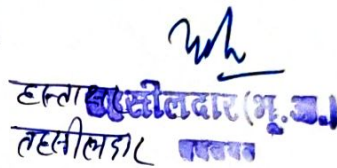 हस्ताक्षर
तहसीलदार (भू.अ.)
तहसीलदार